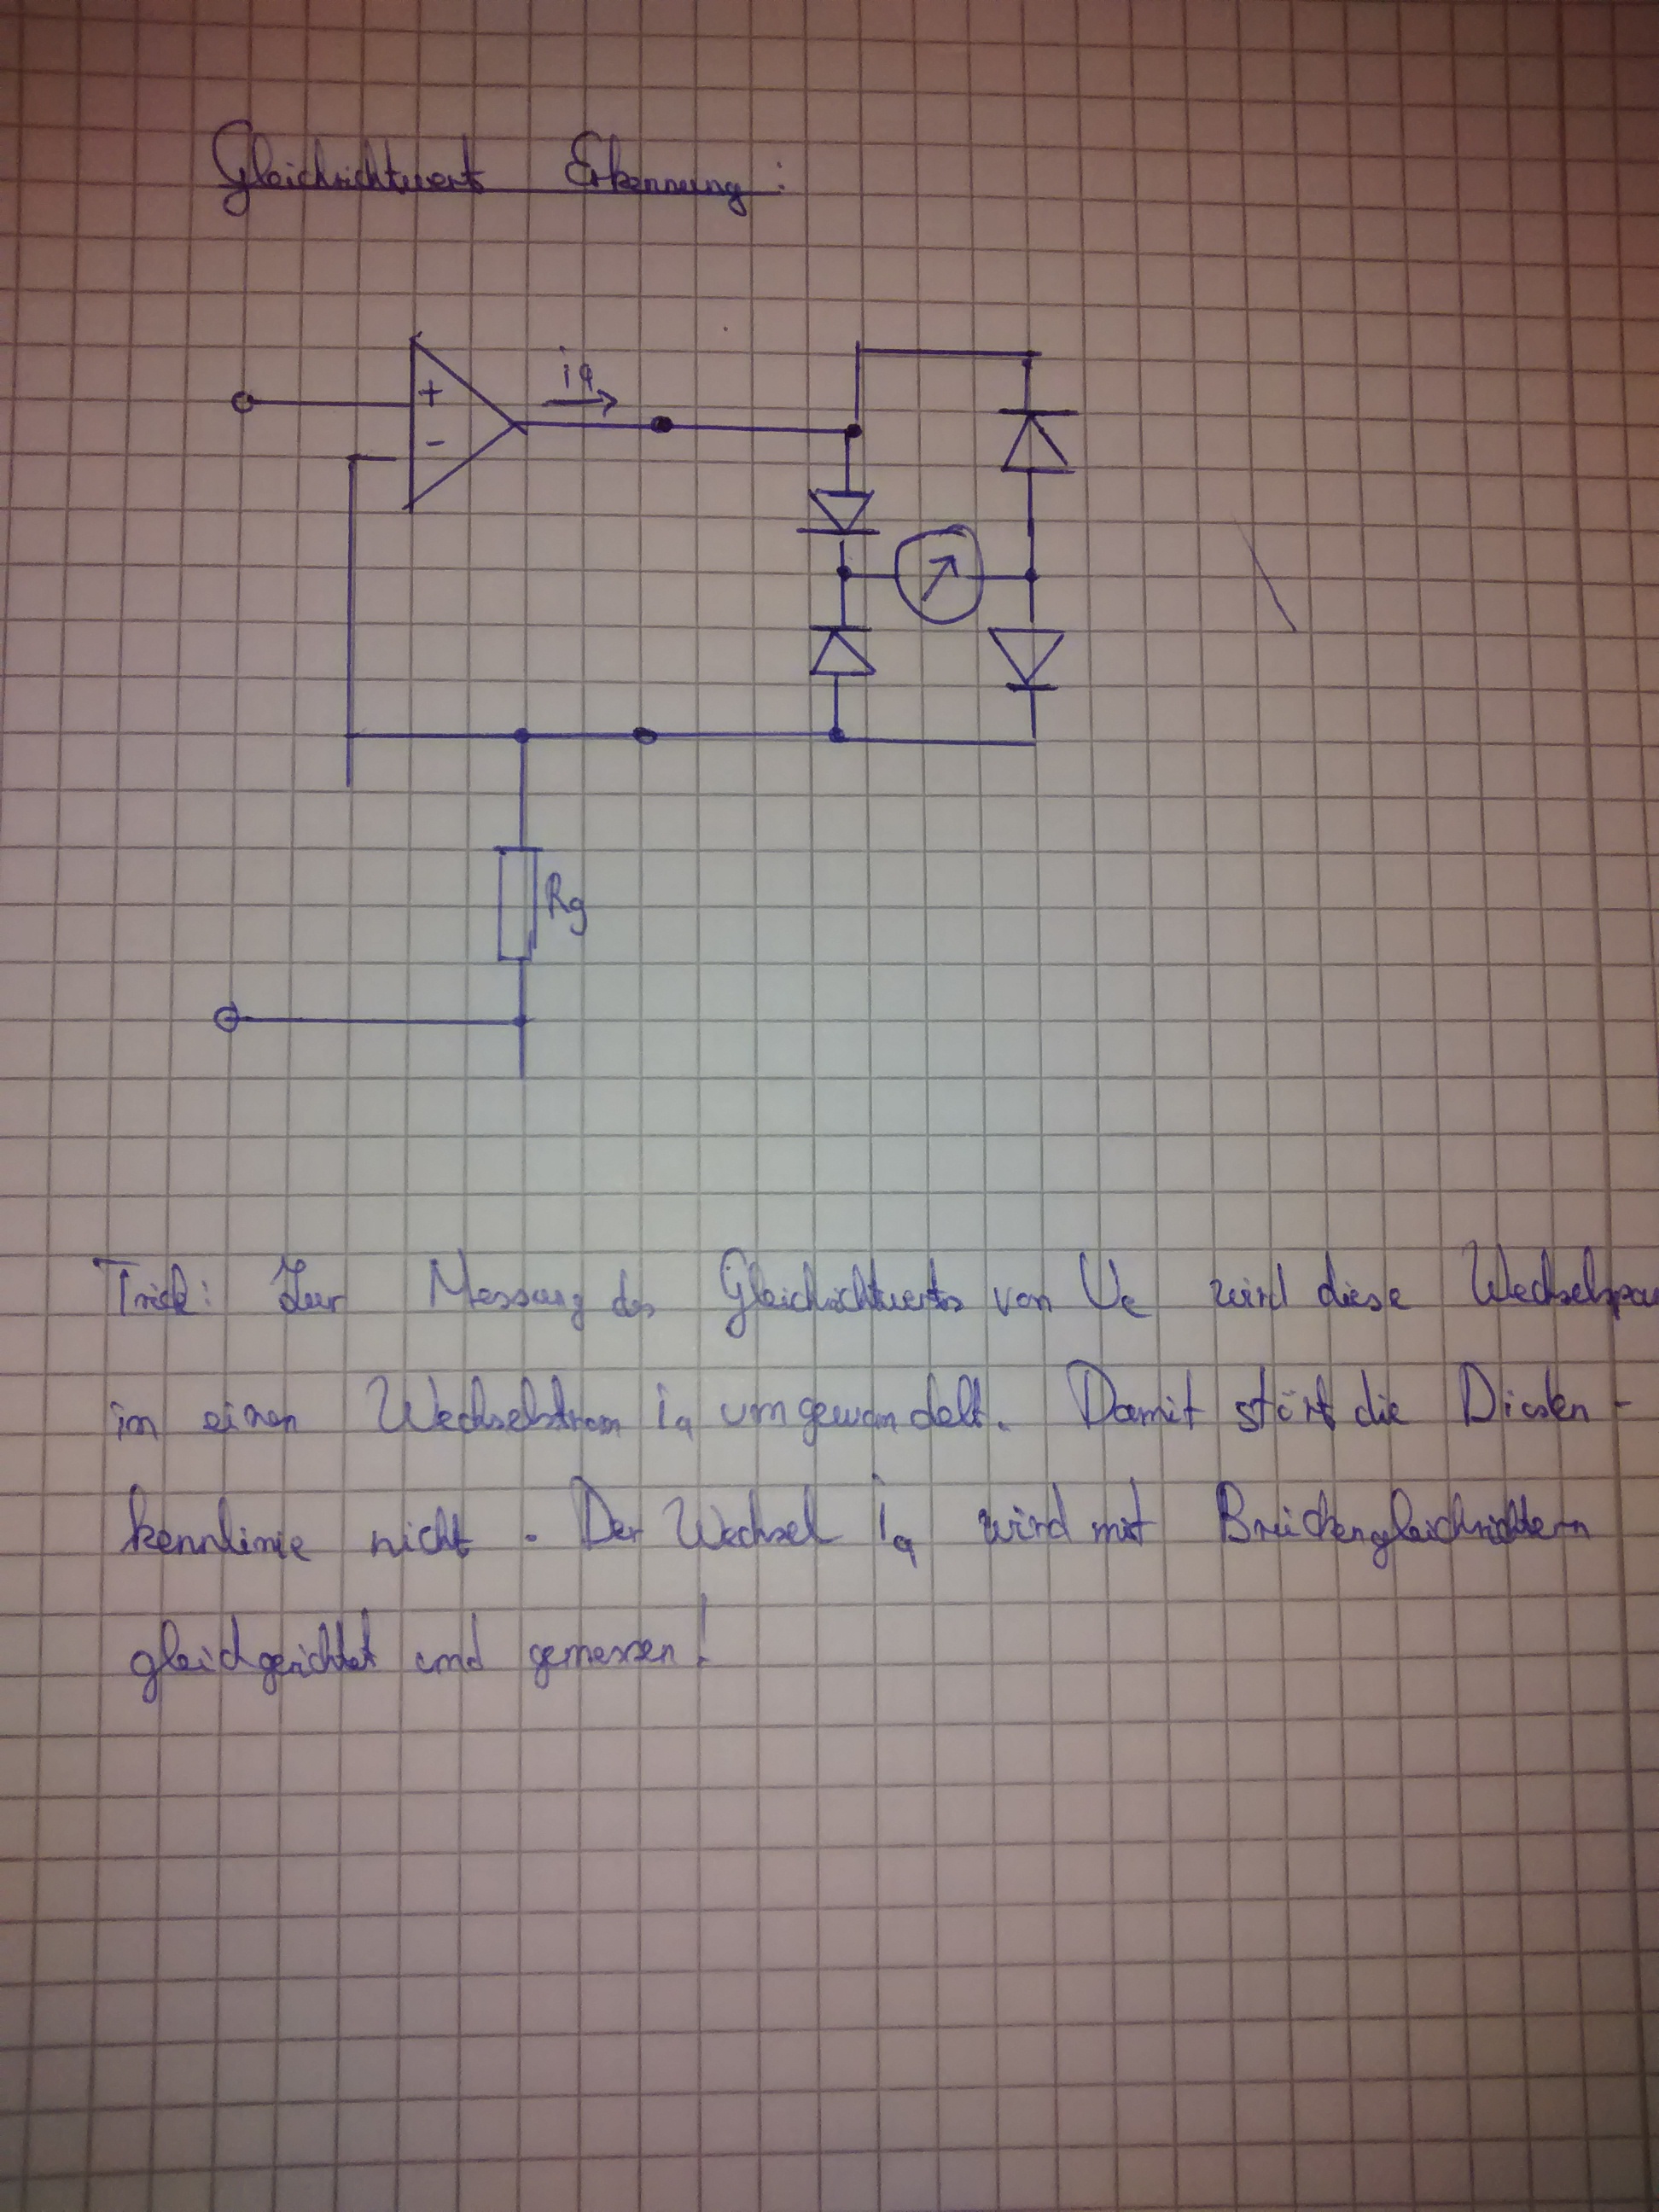 Gleichrichtwert Erkennung:
+
-
ia
Rg
Trick: Zur Messung des Gleichrichtwerts von Ue wird diese
in einen Wechselstrom ia umgewandelt. Damit stört die Dioden-
kennlinie nicht. Der Wechsel ia wird mit Brückengleichrichtern
gleichgerichtet und gemessen!